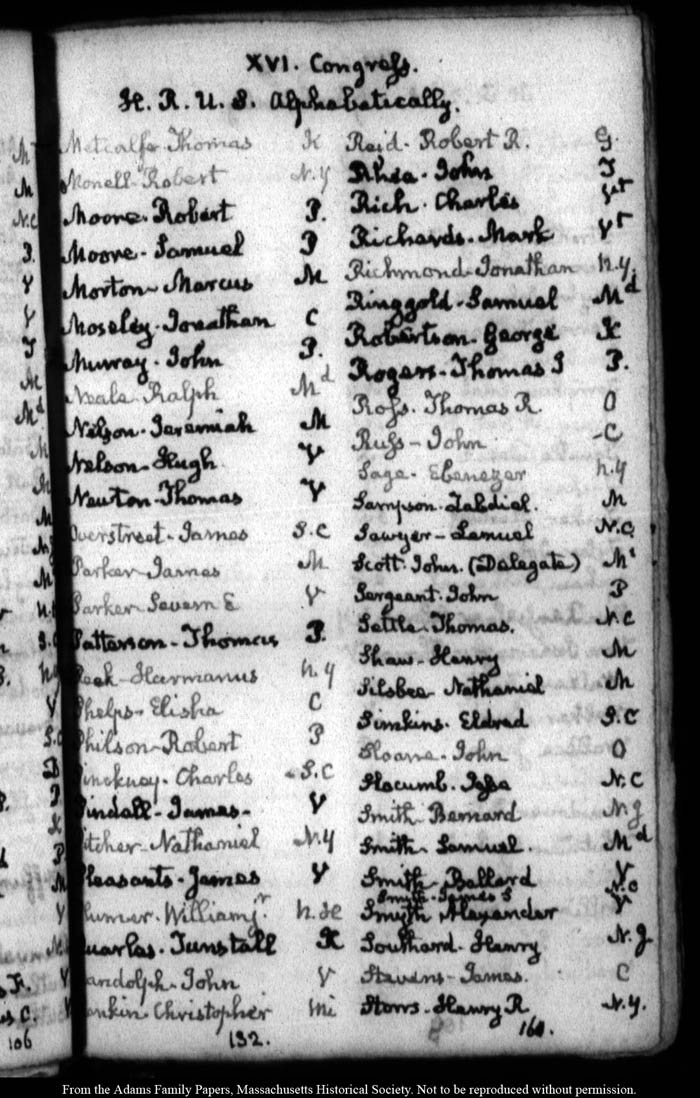 XVI. Congress.
H. R. U. S. Alphabetically.
Metcalfe Thomas K
Monell Robert N.Y
Moore Robert P.
Moore Samuel P
Morton Marcus M
Moseley Jonathan C
Murray John P.
Neale Ralph Md
Nelson Jeremiah M
Nelson Hugh V
Newton Thomas V
Overstreet James S.C
Parker James M
Parker Severn E V
Patterson Thomas P.
Peek Harmanus N.Y
Phelps Elisha C
Philson Robert P
Pinckney Charles S.C
Pindall James V
Pitcher Nathaniel N.Y
Pleasants James V
Plumer William jr N.H
Quarles Tunstall K
Randolph John V
Rankin Christopher Mi
132.
Reid Robert R. G.
Rhea John T
Rich Charles Vt
Richards Mark Vt
Richmond Jonathan N.Y.
Ringgold Samuel Md
Robertson George K
Rogers Thomas J P.
Ross Thomas R. O
Russ John C
Sage Ebenezer N.Y
Sampson Zabdiel. M
Sawyer Lemuel N.C.
Scott John. (Delegate) Mi
Sergeant John P
Settle Thomas. N.C
Shaw Henry M
Silsbee Nathaniel M
Simkins. Eldred S.C
Sloane John O
Slocumb. Jesse N.C
Smith Bernard N.J
Smith Samuel. Md
Smith Ballard V
Smyth James S N.C
Smyth Alexander V
Southard Henry N.J
Stevens James. C
Storrs Henry R N.Y.
160.
106
From the Adams Family Papers, Massachusetts Historical Society. Not to be reproduced without permission.